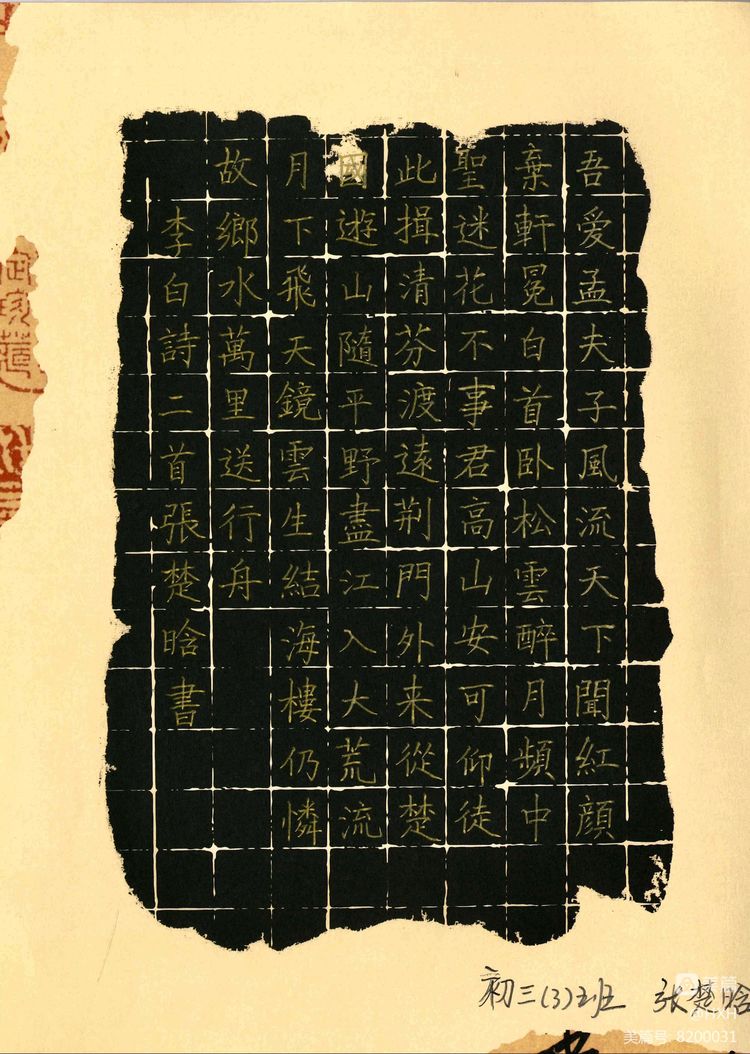 吾愛孟夫子風流天下聞紅顔
棄軒冕白首卧松雲醉月頻中
聖迷花不事君高山安可仰徒
此揖清芬渡遠荆門外来從楚
國遊山隨平野盡江入大荒流
月下飛天鏡雲生結海樓仍憐
故鄉水萬里送行舟
李白詩二首張楚晗書
初三(3)班 张楚晗
美篇号 8200031